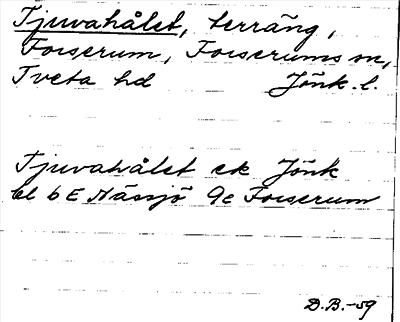 Tjuvahålet, terräng,
Forserum, Forserums sn,
Tveta hd Jönk. l.
Tjuvahålet ek Jönk
bl 6 E Nässjö 9c Forserum
D.B. -59